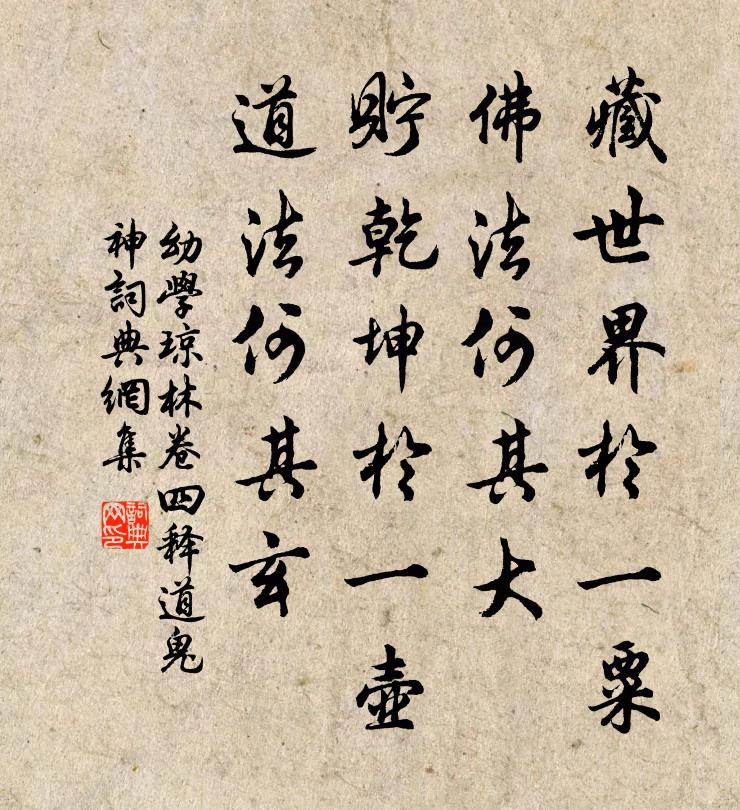 藏世界於一粟
佛法何其大
貯乾坤於一壺
道法何其玄
幼學琼林卷四释道鬼
神詞典網集
詞典
网印